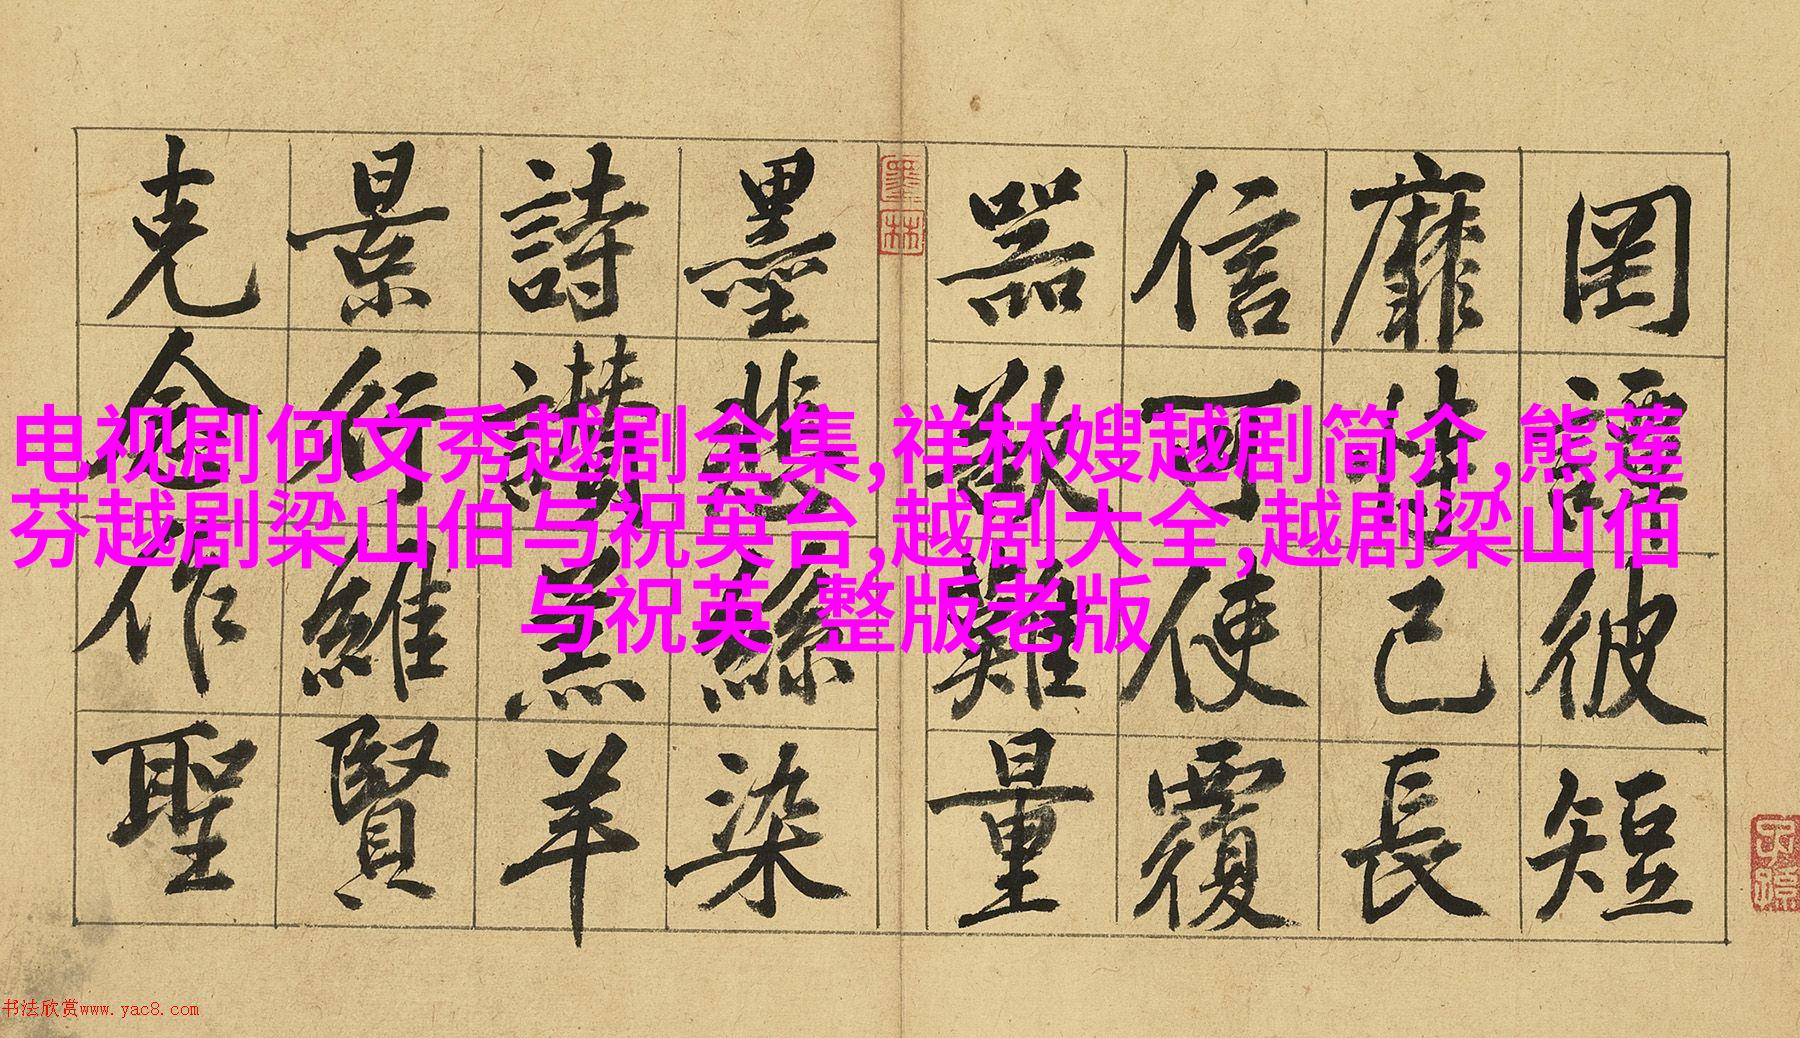 电视剧何文秀越剧全集,祥林嫂越剧简介,熊莲
芬越剧梁山伯与祝英台,越剧大全,越剧梁山伯
与祝英 整版老版
罔談彼短
靡恃己長
信可使覆
器欲難量
墨悲絲染
詩讚羔羊
景行維賢
克念作聖
墨林
书法欣赏www.yac8.com